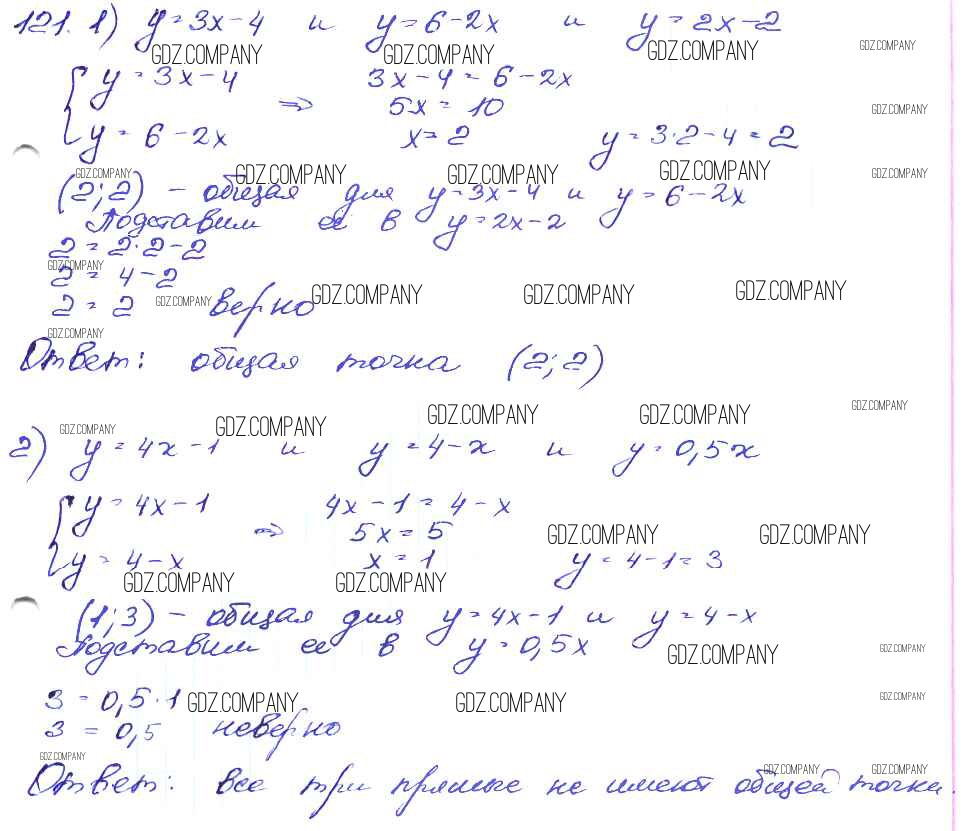 121. 1) y = 3x - 4 и y = 6 - 2x и y = 2x - 2
GDZ.COMPANY GDZ.COMPANY GDZ.COMPANY GDZ.COMPANY
{ y = 3x - 4 3x - 4 = 6 - 2x
⇒ 5x = 10 GDZ.COMPANY
y = 6 - 2x x = 2 y = 3·2 - 4 = 2
GDZ.COMPANY GDZ.COMPANY GDZ.COMPANY GDZ.COMPANY GDZ.COMPANY
(2; 2) - общая для y = 3x - 4 и y = 6 - 2x
Подставим ее в y = 2x - 2
2 = 2·2 - 2
GDZ.COMPANY
2 = 4 - 2
2 = 2 GDZ.COMPANY верно GDZ.COMPANY GDZ.COMPANY GDZ.COMPANY
GDZ.COMPANY
Ответ: общая точка (2; 2)
GDZ.COMPANY GDZ.COMPANY GDZ.COMPANY GDZ.COMPANY GDZ.COMPANY
2) y = 4x - 1 и y = 4 - x и y = 0,5x
{ y = 4x - 1 4x - 1 = 4 - x
⇒ 5x = 5 GDZ.COMPANY GDZ.COMPANY
y = 4 - x x = 1 y = 4 - 1 = 3
GDZ.COMPANY GDZ.COMPANY
(1; 3) - общая для y = 4x - 1 и y = 4 - x
Подставим ее в y = 0,5x GDZ.COMPANY GDZ.COMPANY
3 = 0,5·1 GDZ.COMPANY GDZ.COMPANY GDZ.COMPANY
3 = 0,5 неверно
GDZ.COMPANY GDZ.COMPANY GDZ.COMPANY
Ответ: все три прямые не имеют общей точки.